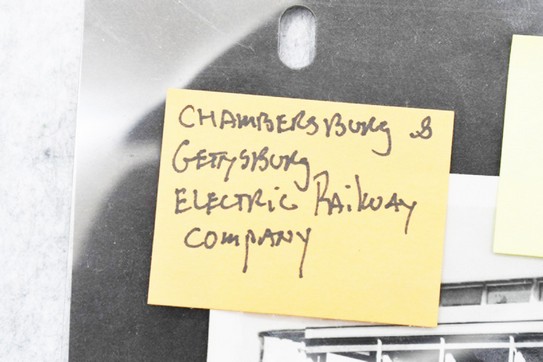 CHAMBERSBURG &
GETTYSBURG
ELECTRIC RAILWAY
COMPANY